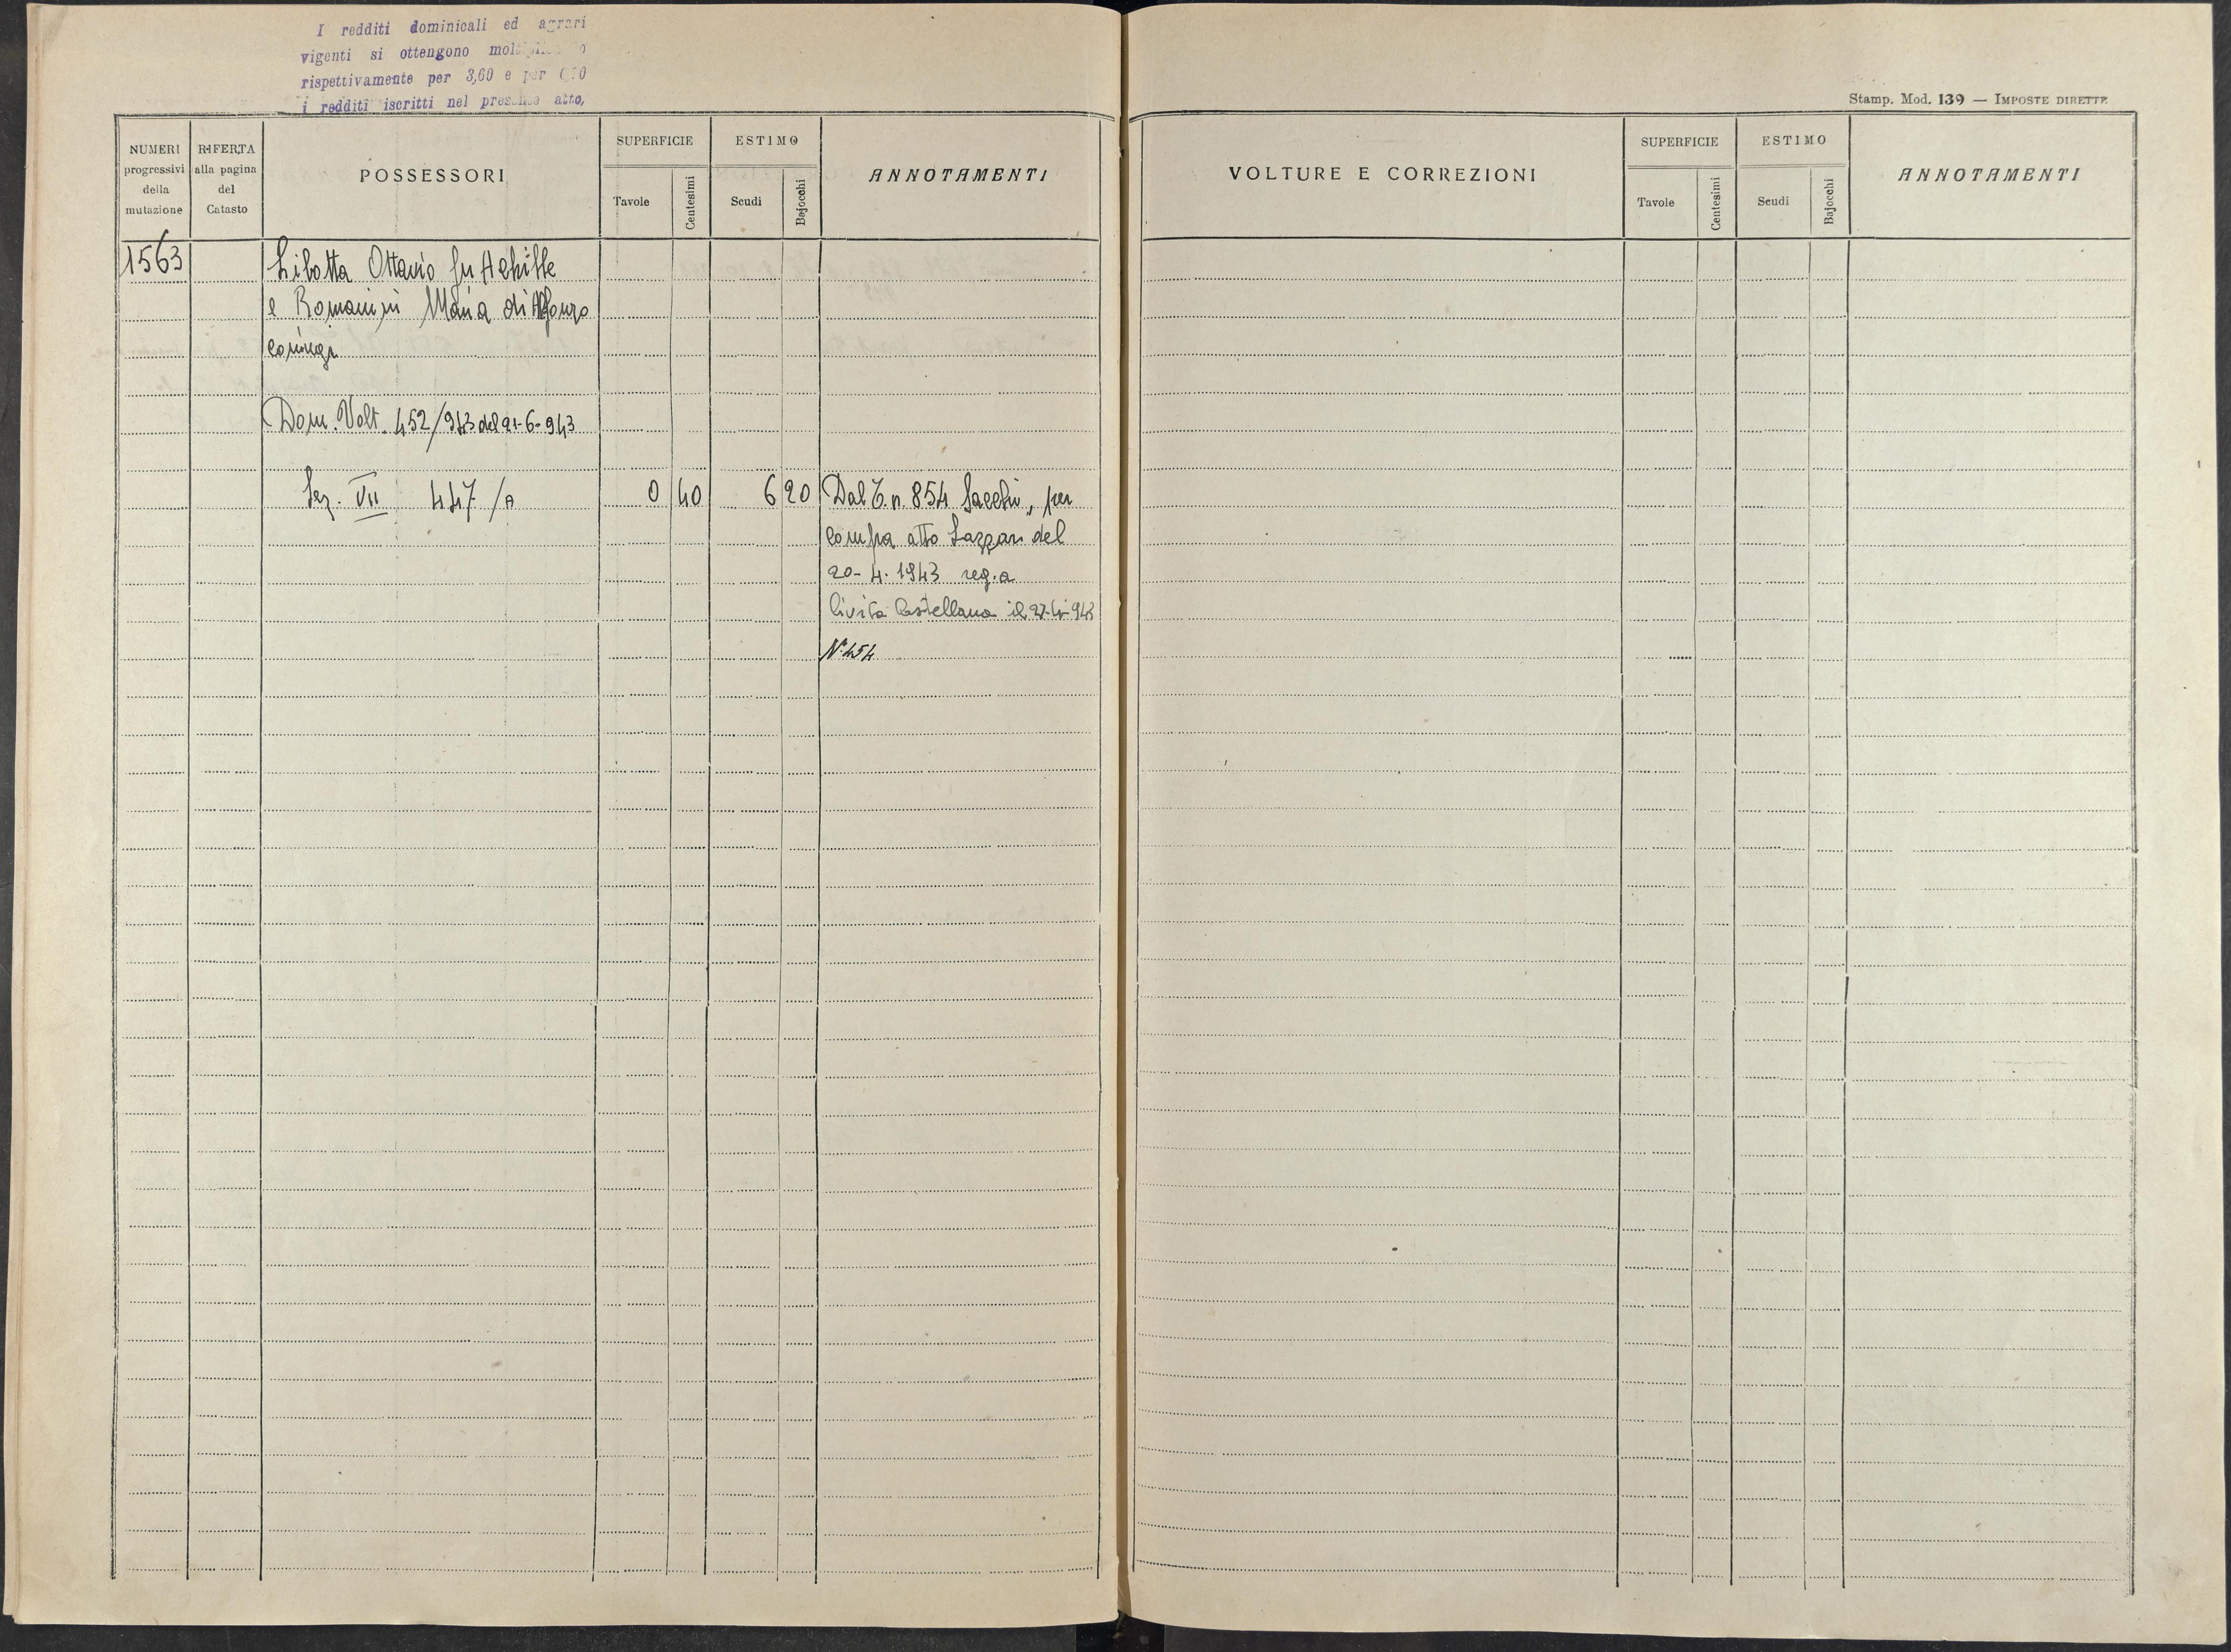 I redditi dominicali ed agrari
vigenti si ottengono
rispettivamente per 3,60 e per
i redditi iscritti nel presente atto,
Stamp. Mod. 139 — IMPOSTE DIRETTE
NUMERI progressivi della mutazione
RIFERTA alla pagina del Catasto
POSSESSORI
SUPERFICIE
Tavole
Centesimi
ESTIMO
Scudi
Bajocchi
ANNOTAMENTI
VOLTURE E CORREZIONI
SUPERFICIE
Tavole
Centesimi
ESTIMO
Scudi
Bajocchi
ANNOTAMENTI
1563 Libotta Ottavio fu Achille
e Romanini Maria di Alfonso
coniugi
Dom. Volt. 452/943 del 21-6-943
Sez. VII 447/A 0 40 6 20 Dal C. n. 854 Sacchi, per
compra atto Lazzari del
20-4-1943 reg. a
Civita Castellana il 27-4-943
N. 454